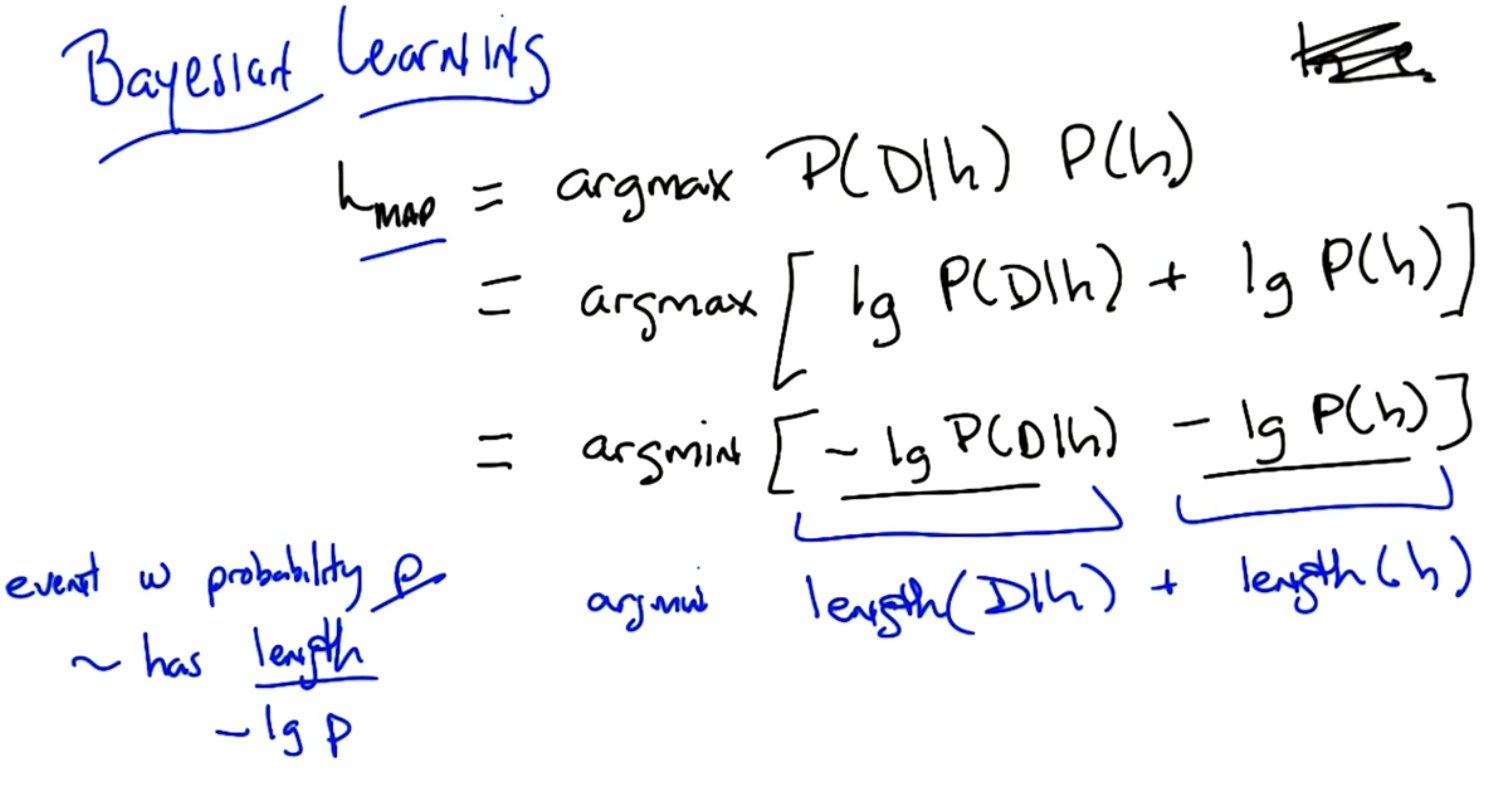 Bayesian Learning
h_MAP = argmax P(D|h) P(h)
= argmax [ lg P(D|h) + lg P(h) ]
= argmin [ - lg P(D|h) - lg P(h) ]
argmin length(D|h) + length(h)
event w probability p
~ has length
- lg p